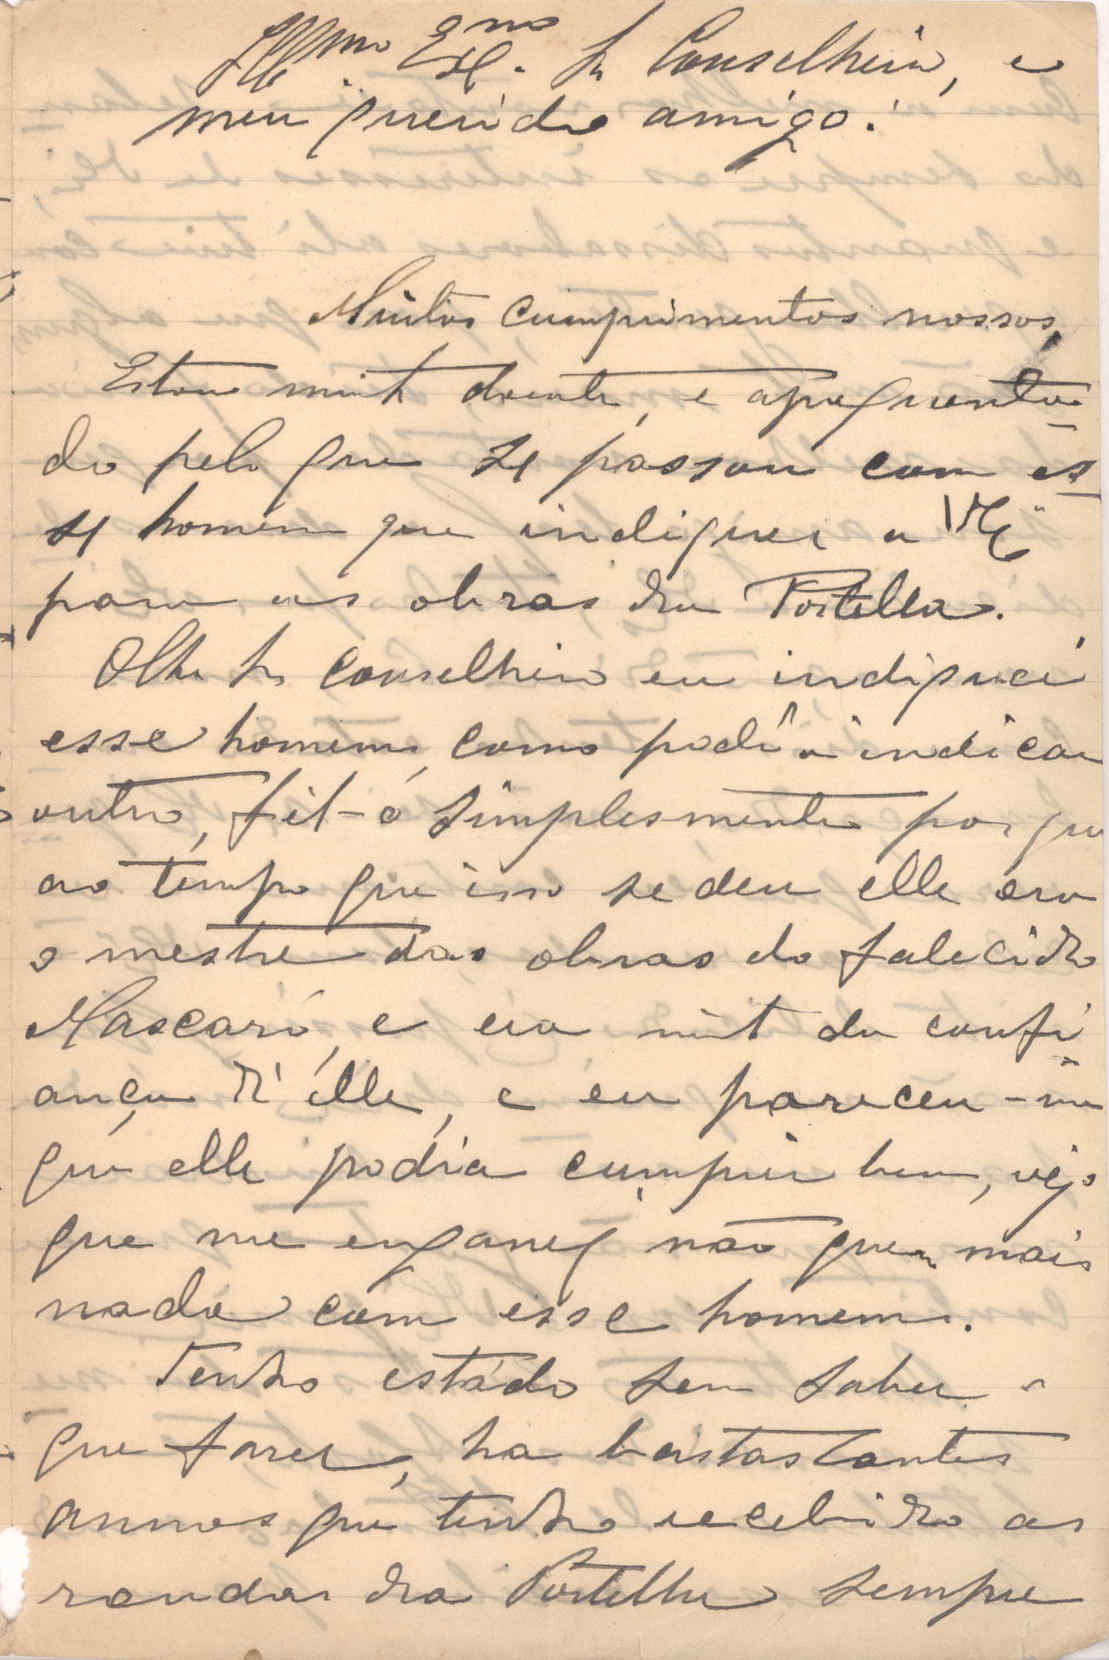 Illmo Exmo Sr Conselheiro, e
meu querido amigo.
Muitos cumprimentos nossos,
Estou muito doente, e apoquenta-
do pelo que se passou com es-
se homem que indiquei a V Ex
para as obras da Portella.
Olhe Sr Conselheiro eu indiquei
esse homem, como podia indicar
outro, fil-o simplesmente porque
ao tempo que isso se deu elle era
o mestre das obras do falecido
Mascaró, e era mt da confi
ança d'elle, e eu pareceu-me
que elle podia cumprir bem, vejo
que me enganei não quero mais
nada com esse homem.
Tenho estado sem saber o
que fazer, ha bastastantes
annos que tenho recebido as
rendas da Portella sempre